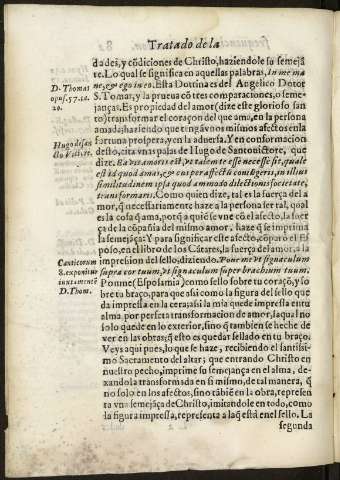 Tratado de la
dades, y cõdiciones de Christo, haziendole su semejã
te. Lo qual se significa en aquellas palabras, In me ma
ne, & ego in eo. Esta Dotrina es del Angelico Dotor
S. Tomas, y la prueua cõ tres comparationes, o seme-
janças. Es propiedad del amor (dize este glorioso san
to) transformar el coraçon del que ama, en la persona
amada; haziendo que tengã vnos mismos afectos en la
fortuna prospera, y en la aduersa. Y en conformacion
desto, cita vnas palabras de Hugo de Santouictore, que
dize. Ea vis amoris est, vt talem te esse necesse sit, quale
est id quod amas, & cui per afectũ coniũgeris, in illius
similitudinem ipsa quodammodo dilectionis societate,
transformari. Como quien dize, tal es la fuerça del a
mor, q̃ necessariamente haze a la persona ser tal, qual
es la cosa q̃ ama, porq̃ a quiẽ se vne cõ el afecto, la fuer
ça de la cõpañia del mismo amor, haze q̃ se imprima
la semejãça: Y para significar este afecto, cõparo el Es
poso, en el libro de los Cãtares, la fuerça del amor, a la
impresion del sello, diziendo. Pone me vt signaculum
supra cor tuum, & vt signaculum super brachium tuum.
Ponme (Esposa mia) como sello sobre tu coraçõ, y so
bre tu braço, para que assi como la figura del sello que
da impressa en la cera; assi la mia quede impressa en tu
alma, por perfeta transformacion de amor, la qual no
solo quede en lo exterior, sino q̃ tambien se heche de
ver en las obras; q̃ esto es quedar sellado en tu braço.
Veys aqui pues, lo que se haze, recibiendo el santissi-
mo Sacramento del altar; que entrando Christo en
nuestro pecho, imprime su semejança en el alma, de-
xandola transformada en si mismo, de tal manera, q̃
no solo en los afectos, sino tãbiẽ en las obras, represen
ta vna semejãça de Christo, imitandole en todo, como
la figura impressa, representa a la q̃ està en el sello. La
segunda
D. Thomas
opus. 57. ca.
20.
Hugo de san
cto Victore.
Canticorum
8. exponitur
iuxta mentẽ
D. Thom.